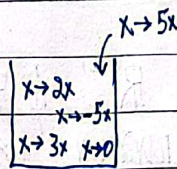 x→5x
x→2x
x→-5x
x→3x x→0